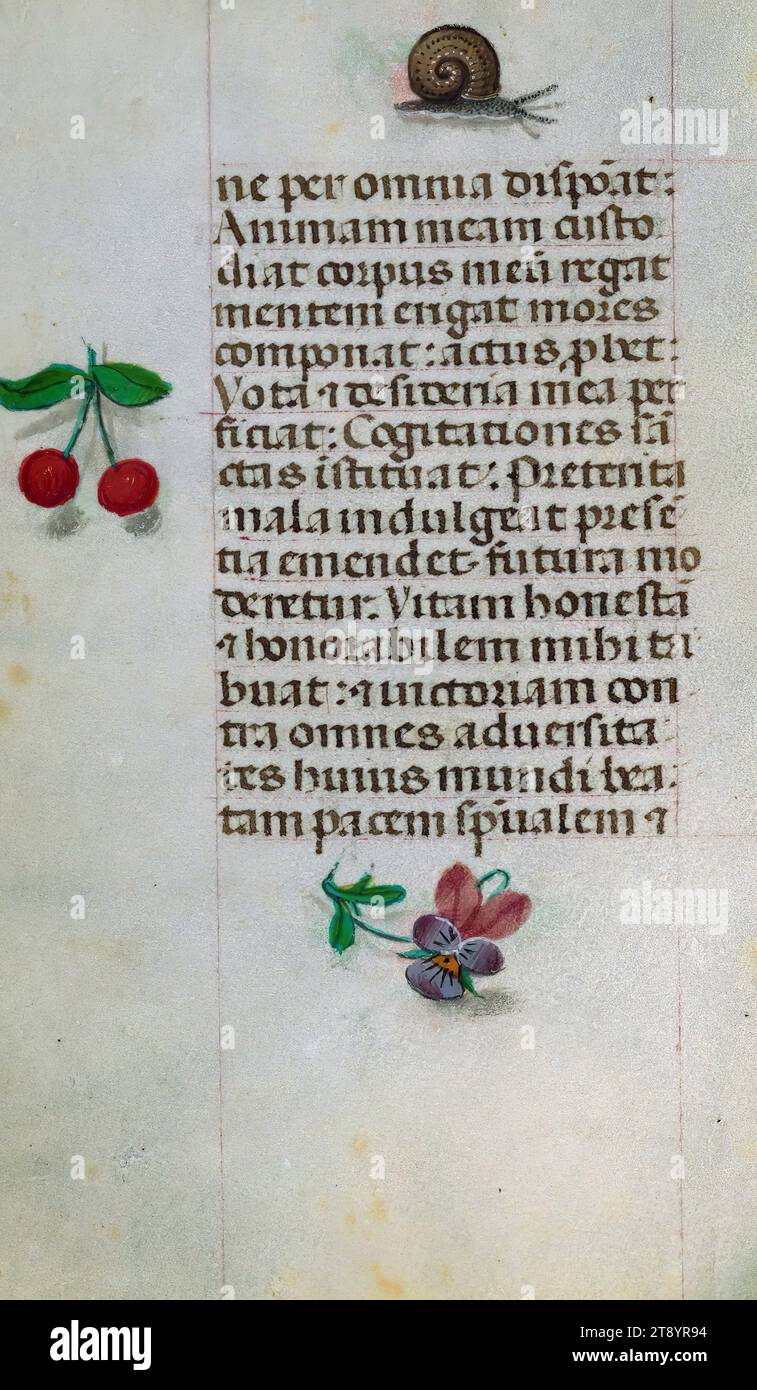 ne per omnia dispõat:
Animam meam custo
diat corpus meũ regat
mentem erigat mores
componat: actus ꝓbet:
Vota ⁊ desideria mea per
ficiat: Cogitationes sã
ctas istituat: Preterita
mala indulgeat presẽ
tia emendet futura mo
deretur. Vitam honestã
⁊ honorabilem mihi tri
buat: ⁊ victoriam con
tra omnes aduersita
tes huius mundi bea
tam pacem sp̃ualem ⁊
alamy
alamy
alamy
alamy
Image ID: 2T8YR94
www.alamy.com